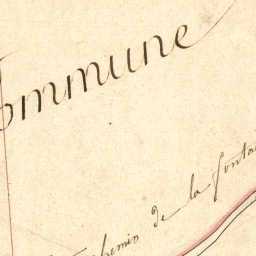 ommune
chemin de la fonta